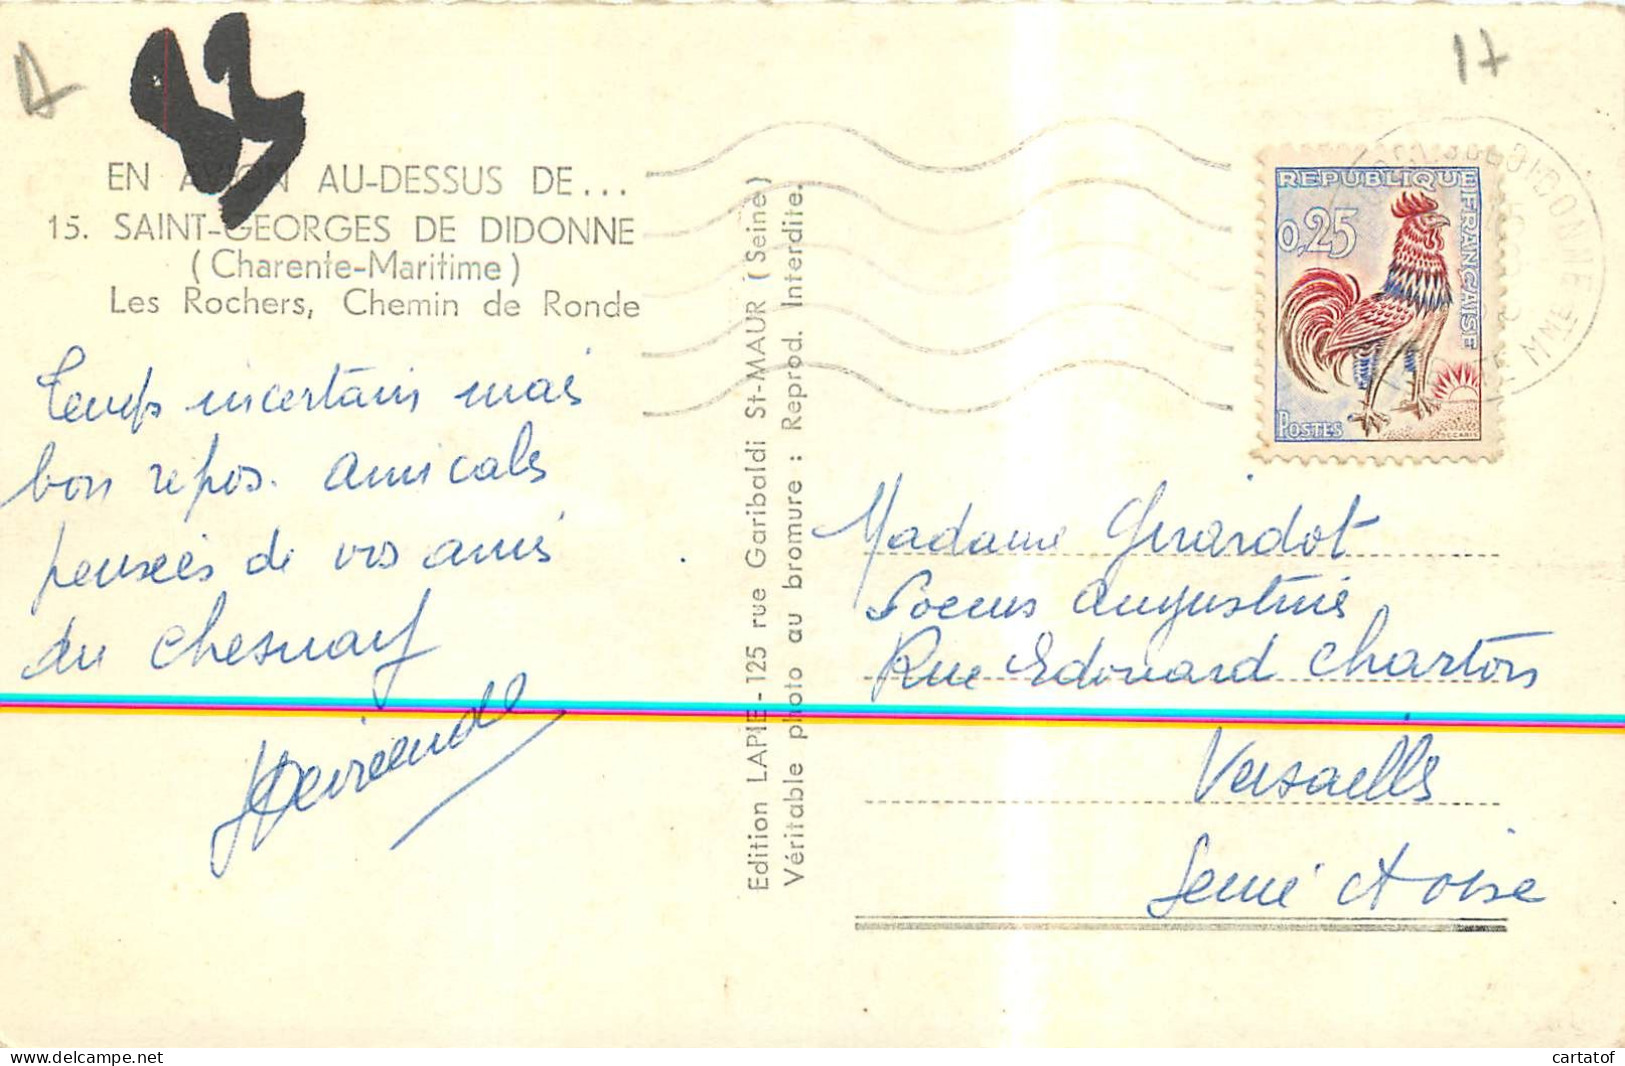 17
EN AVION AU-DESSUS DE...
15. SAINT-GEORGES DE DIDONNE
(Charente-Maritime)
Les Rochers, Chemin de Ronde
Temps incertain mais
bon repos. Amicales
pensées de vos amis
du Chesnay
Edition LAPIE - 125 rue Garibaldi St-MAUR (Seine)
Véritable photo au bromure : Reprod. Interdite.
REPUBLIQUE FRANÇAISE
0,25
POSTES
DECARIS
Madame Girardot
Soeurs Augustines
Rue Edouard Charton
Versailles
Seine et Oise
cartatof